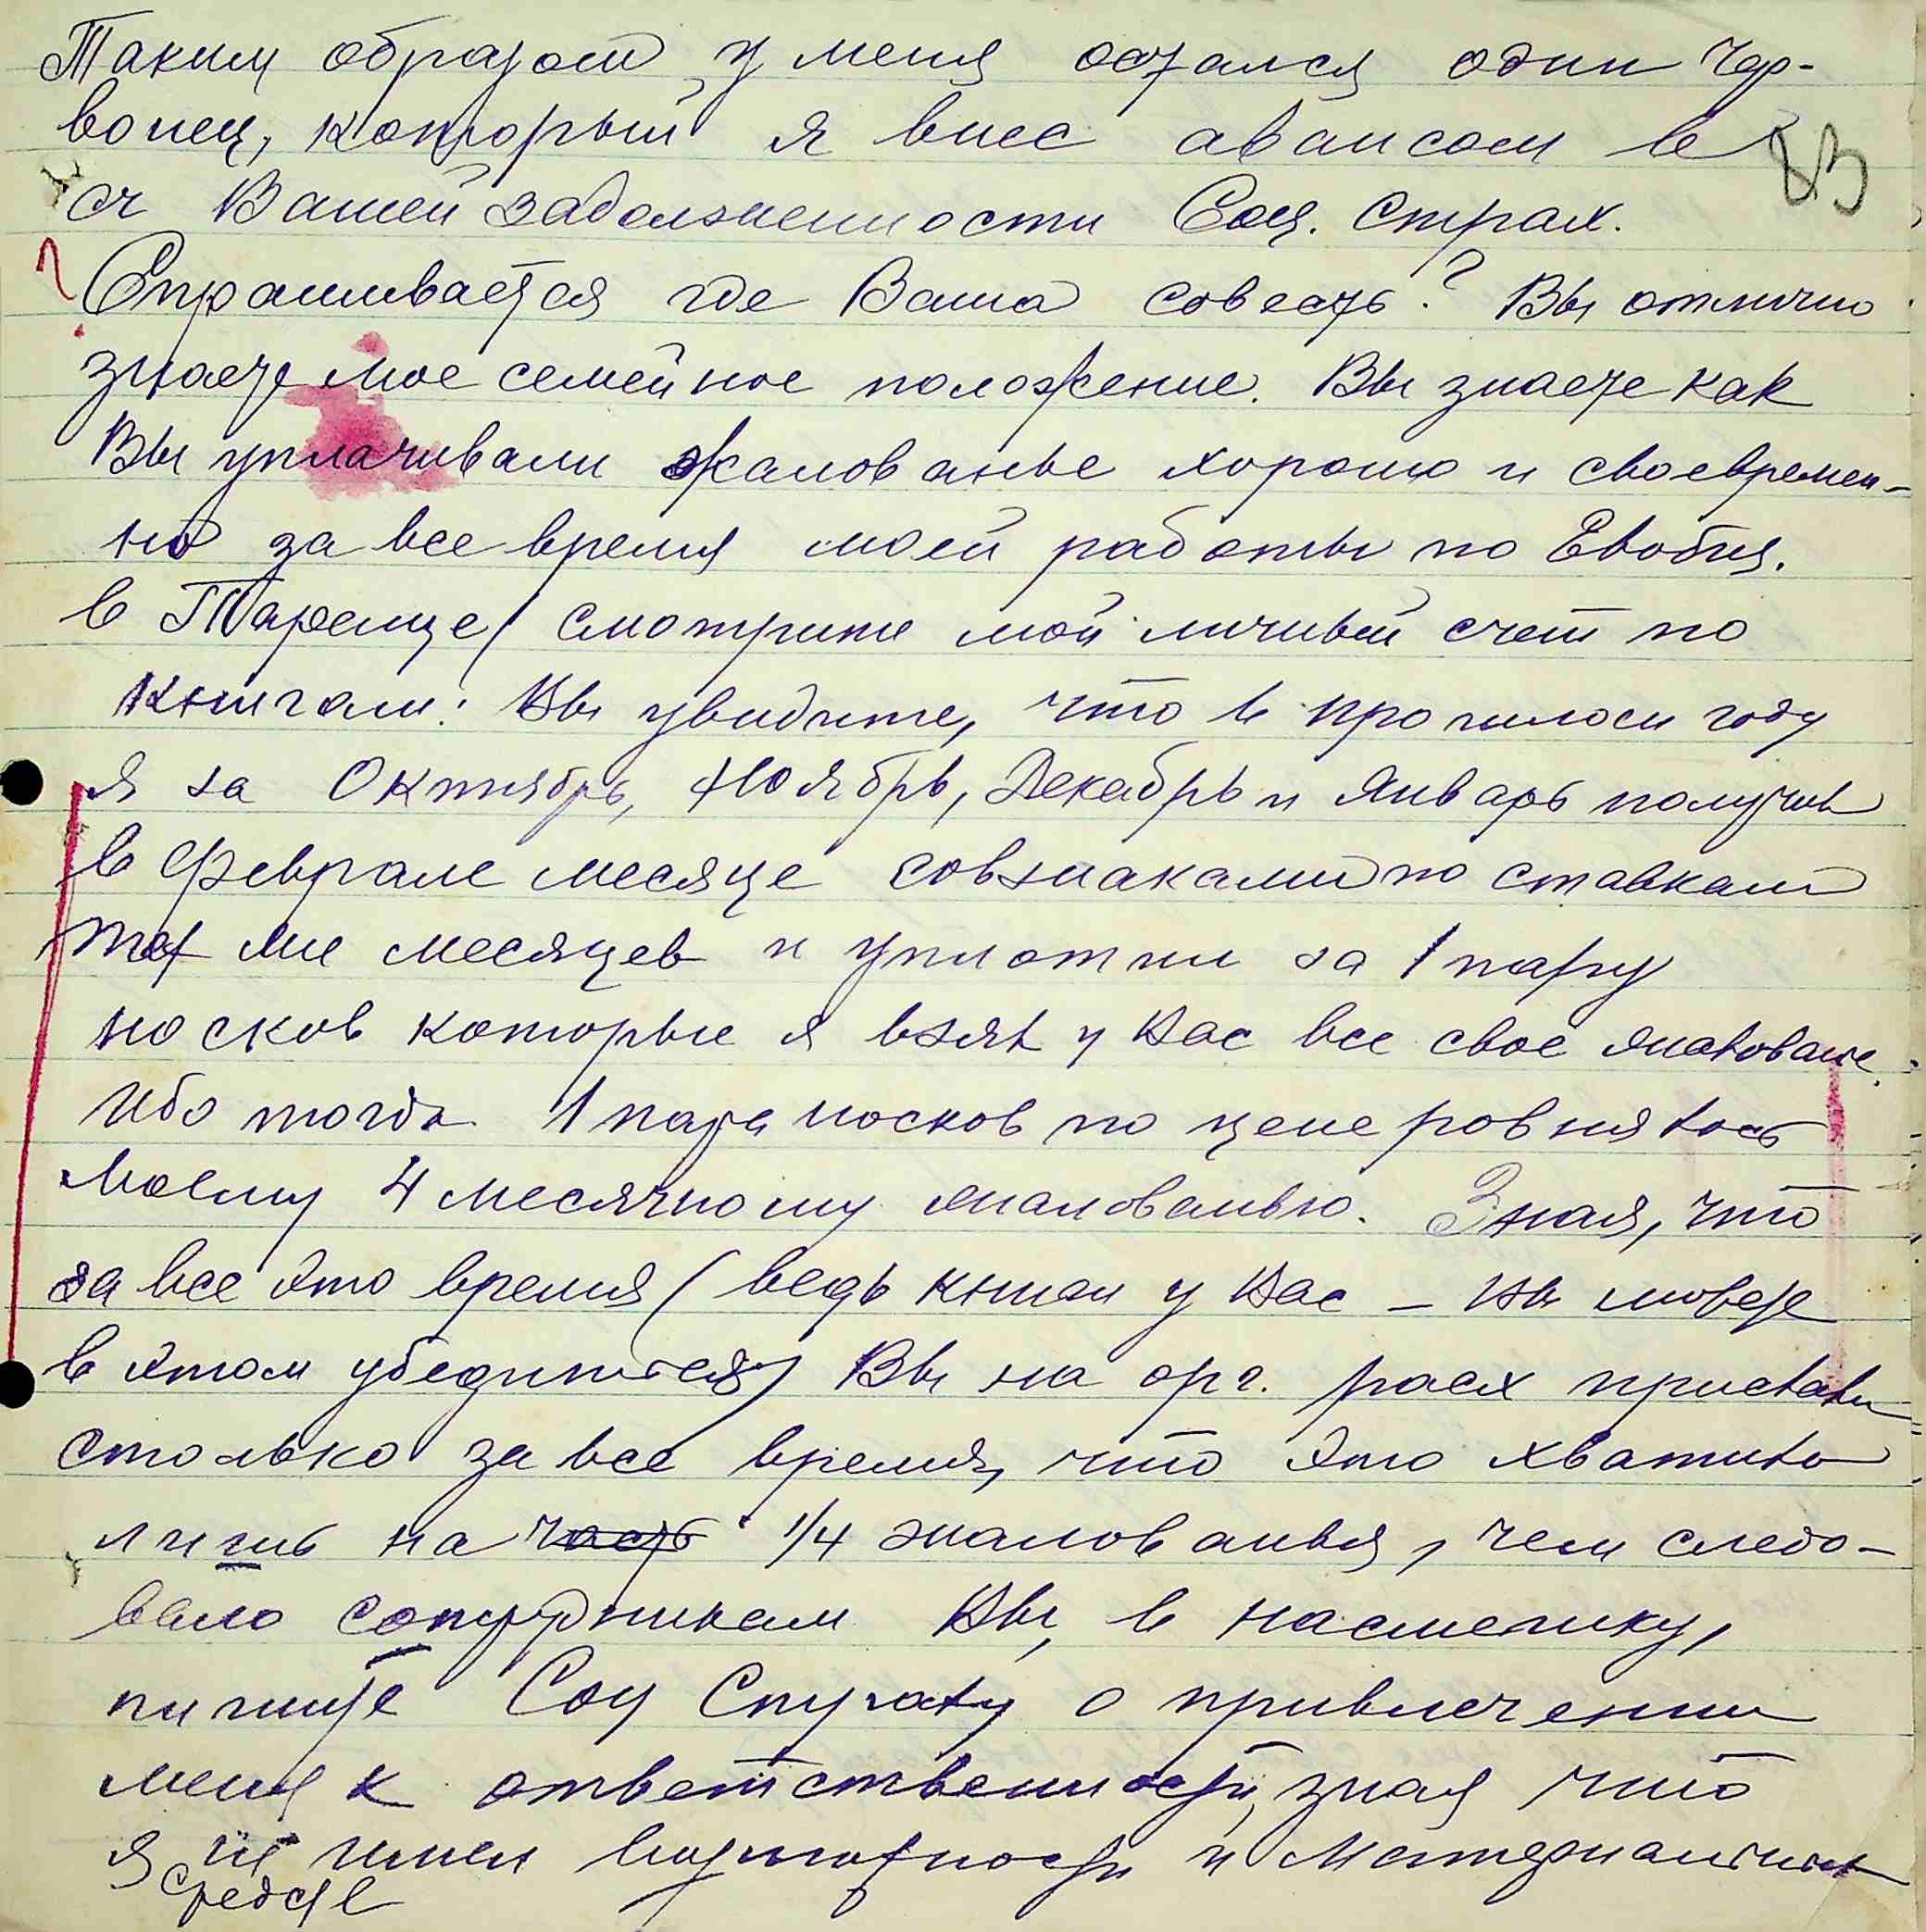 Таким образом у меня остался один чер-
вонец, который я внес авансом в
83
сч Вашей задолженности Соц. Страх.
Спрашивается где Ваша совесть? Вы отлично
знаете мое семейное положение. Вы знаете как
Вы уплачивали жалованье хорошо и своевремен-
но за все время моей работы по
в смотрите мой личный счет по
книгам: Вы увидите, что в прошлом году
я за Октябрь, Ноябрь, Декабрь и Январь получив
в Феврале месяце совзнаками по ставкам
тех же месяцев и уплотил за 1 пару
носков которые я взял у Вас все свое жалование.
Ибо тогда 1 пара носков по цене ровнялась
моему 4 месячному жалованью. Зная, что
за все это время (ведь книги у Вас – Вы можете
в этом убедиться) Вы на орг. расх прислали
столько за все время, что это хватило
лишь на часть 1/4 жалованья, чем следо-
вало сотрудникам Вы, в насмешку,
пишите Соц Страху о привлечении
меня к ответственности, зная что
я не имел возможности и материальных
средств